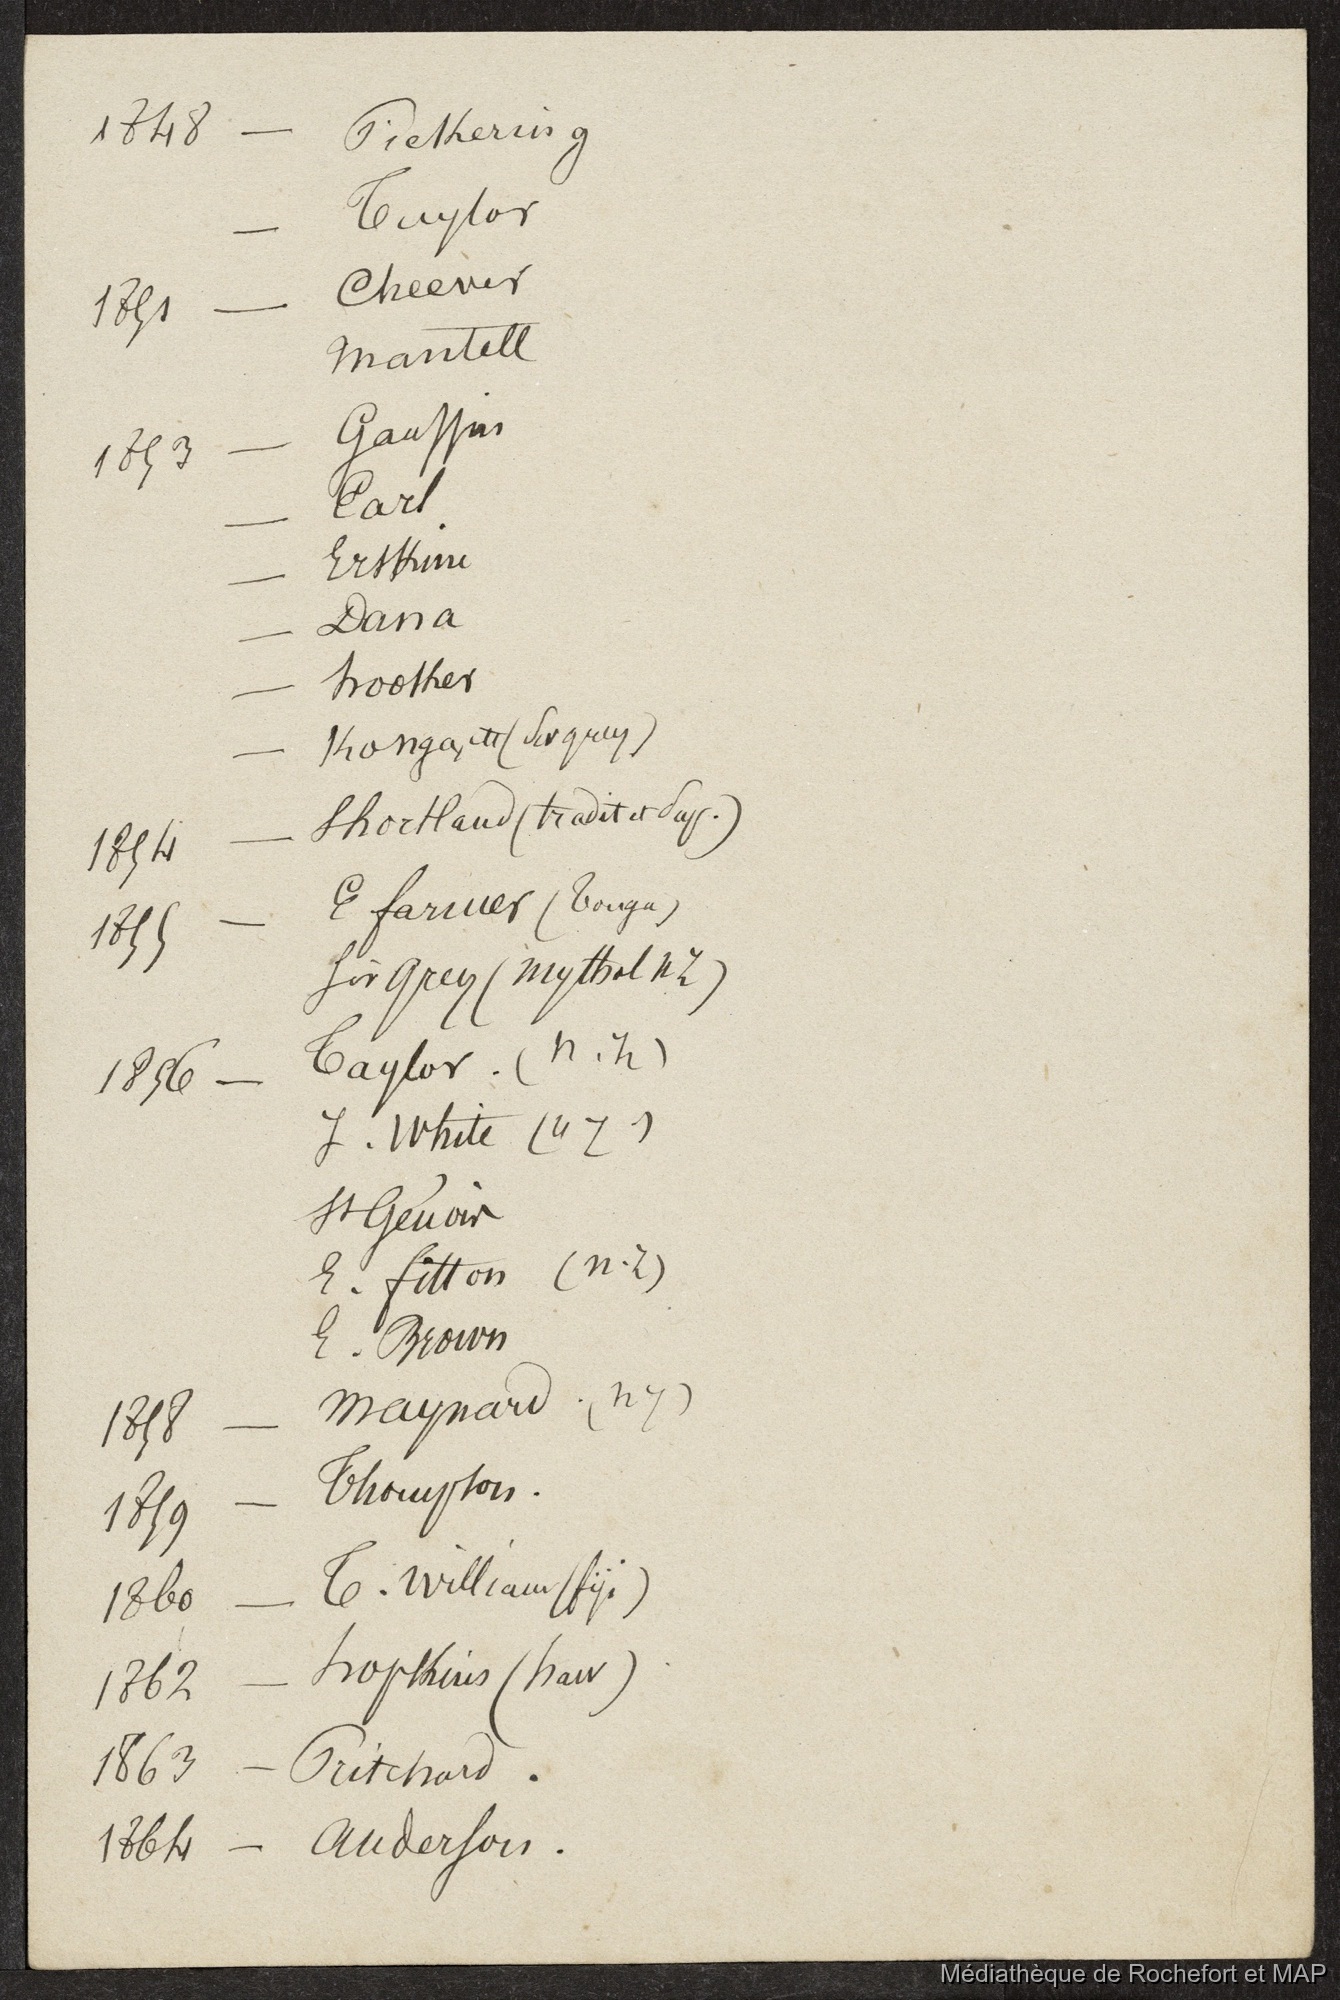 1848 — Pickering
— Taylor
1851 — Cheever
Mantell
1853 — Gaussin
— Earl.
— Erskine
— Dana
— hooker
— Konga, ett (Sir grey)
1854 — Shortland (tradit et sup.)
1855 — E farmer (Tonga)
Sir Grey (mythol n Z)
1856 — Taylor. (n. Z)
J. White (n Z)
St Génoir
E. fitton (n. Z)
E. Brown
1858 — Maynard. (n Z)
1859 — Thompson.
1860 — T. William (fiji)
1862 — hopkins (haw)
1863 — Pritchard.
1864 — Anderson.
Médiathèque de Rochefort et MAP